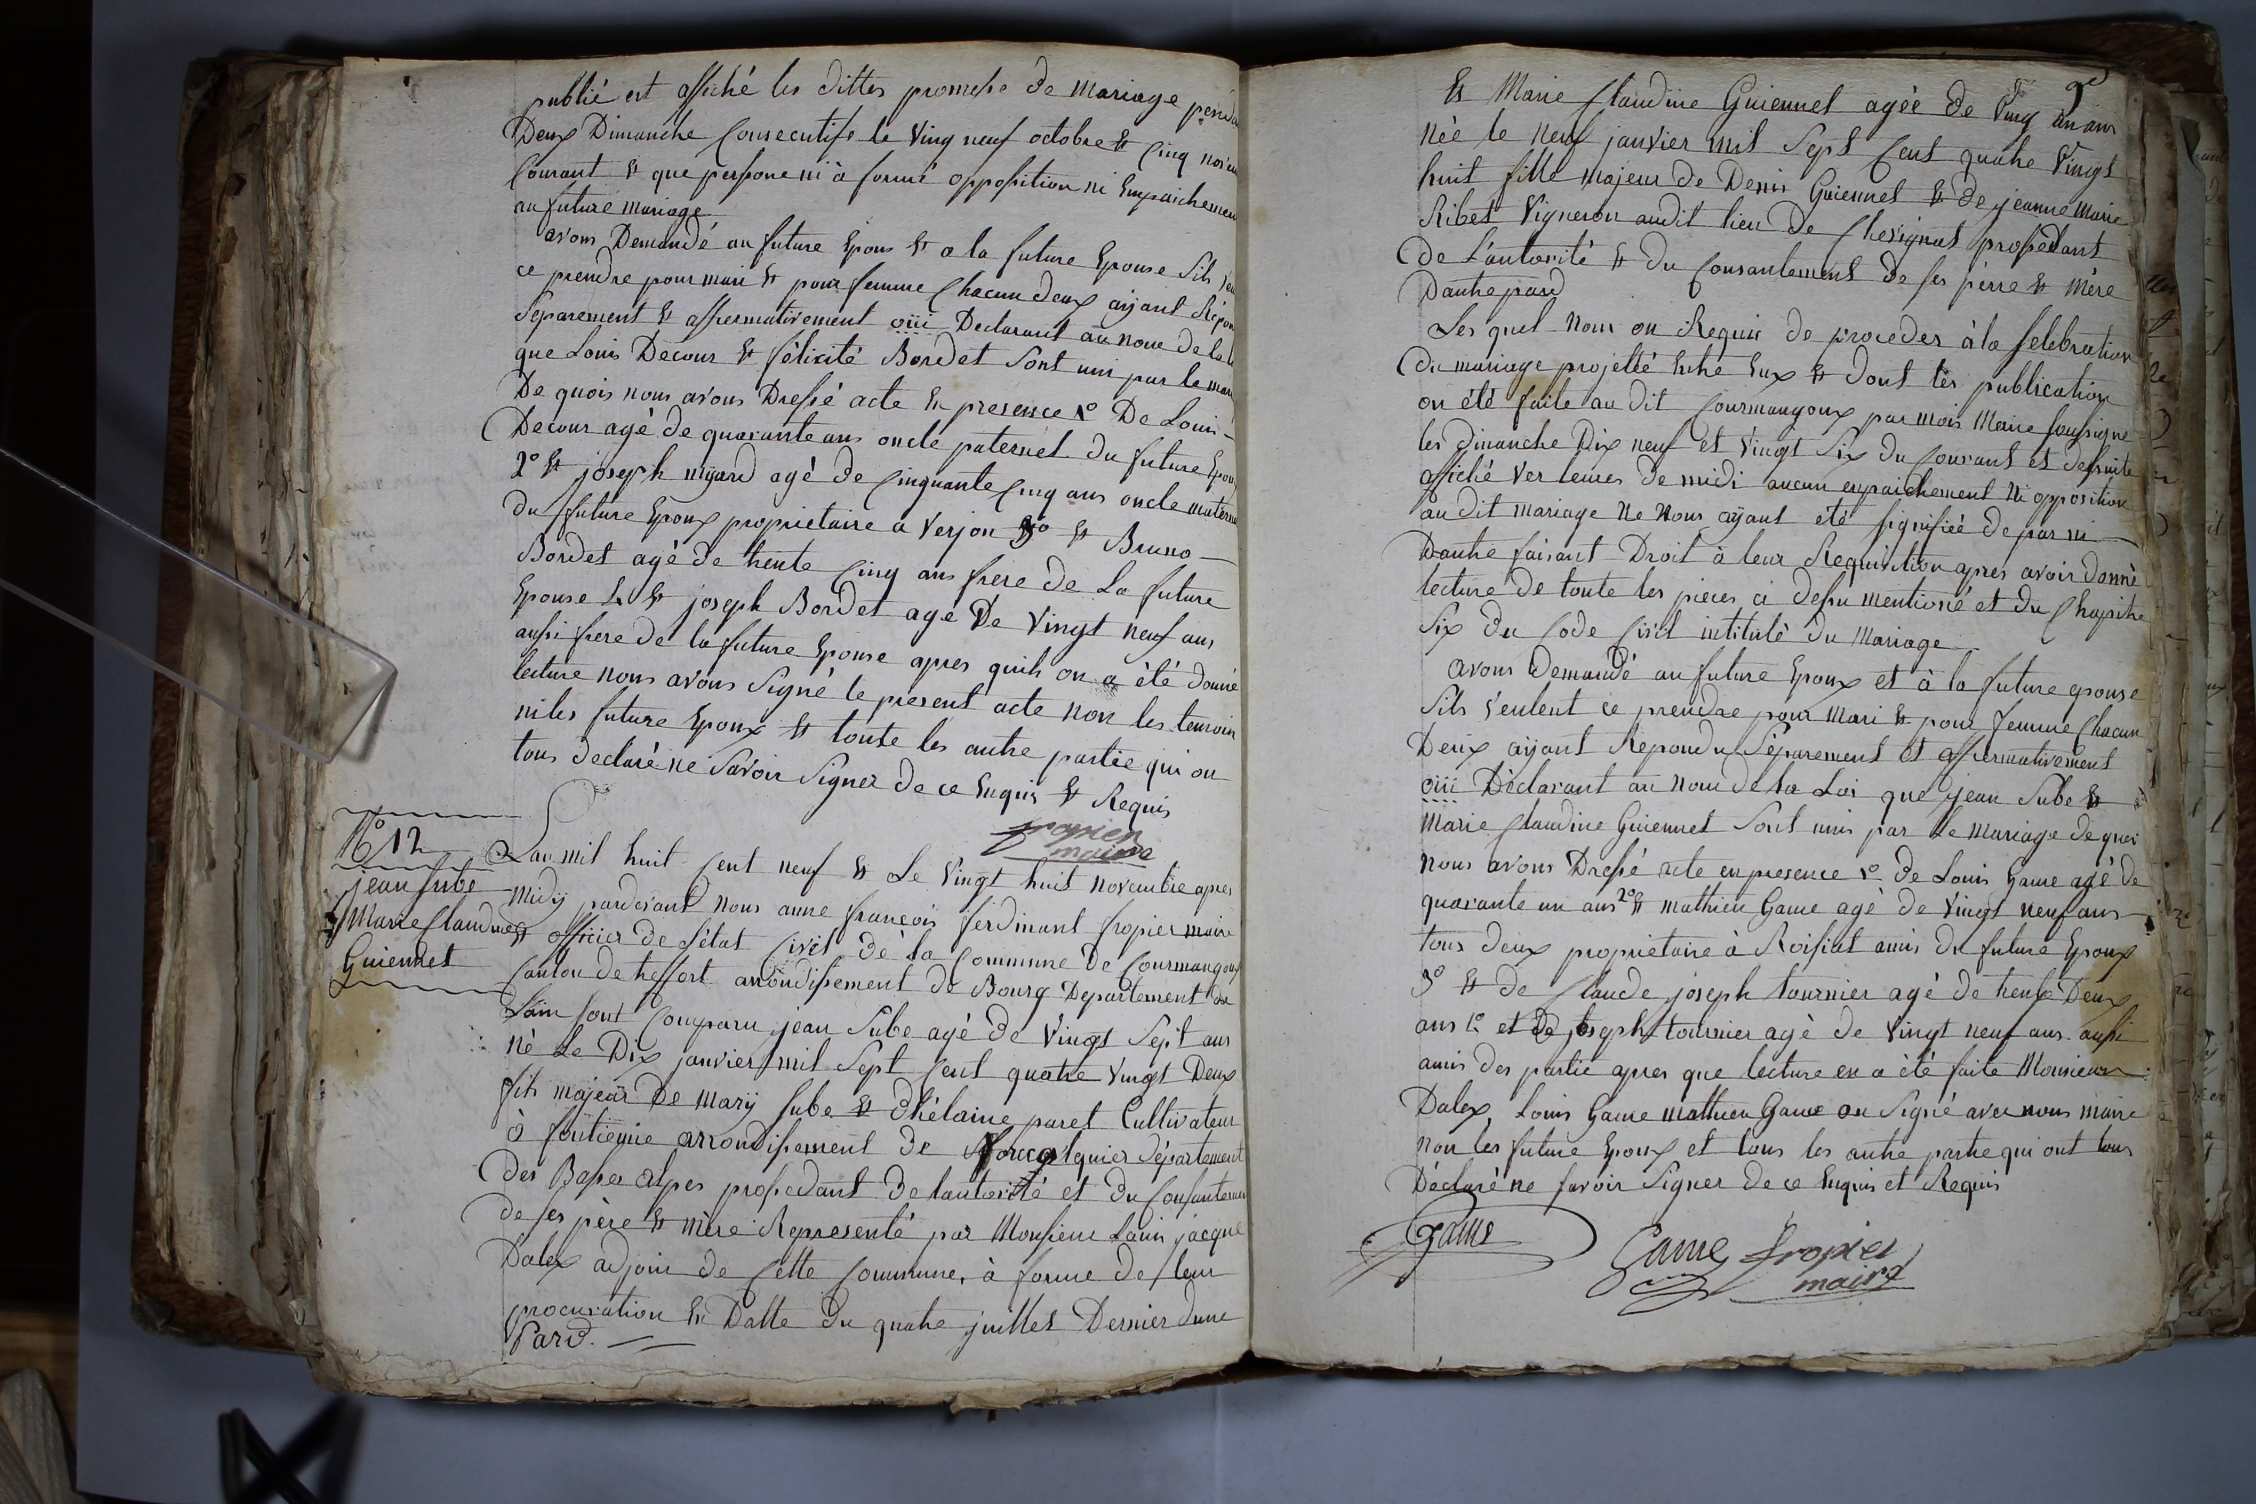 publié est affiché les dittes promesse de mariage penda
Deux Dimanche Consecutifs le Ving neuf octobre & Cinq nov
Courant & que persone ni à formé opposition ni Empaichemen
au future mariage
avons Demandé au future Epous & a la future Epouse Sils
ce prendre pour mari & pour femme Chacun deux aÿant Répon
Séparement & affirmativement oüi Declarant au nom de la
que Louis Décour & félicité Bordet Sont uni par le mari
De quois nous avons Dressé acte En presence 1º De Louis
Decour agè de quarante ans oncle paternel du future Epou
2º & joseph mÿard agè de Cinquante Cinq ans oncle matern
du future Epoux proprietaire a Verjon 3º & Bruno
Bordet agè de trente Cinq ans frere de La future
Epouse 4 & joseph Bordet agé De Vingt neuf ans
aussi frere de la future Epouse apres quils on a èté donné
lecture nous avons Signé le present acte non les temoin
ni les future Epoux & toute les autre partie qui on
tous declaré ne Savoir Signer de ce Enquis & Requis
fropier
maire
Nº 12
jean sube
& Marie Claudine
Guiennet
Lan mil huit Cent neuf & Le Vingt huit novembre apres
midÿ pardevant nous anne françois ferdinant fropier maire
& officier de l'état Civil dè la Commune de Courmangoux
Canton de treffort arrondissement de Bourg Departement de
Lain Sont Comparu jean Sube agé de Vingt Sept ans
nè Le Dix janvier mil Sept Cent quatre Vingt Deux
fils majeur De marÿ Sube & dhélaine paret Cultivateur
à fontienne arrondissement de forcalquier Département
Des Basses alpes proscedant De lautorité et du Consantemen
de ses père & mère Representé par Monsieur Louis jacque
Dalex adjoin de Cette Commune, à forme de leur
procuration En Datte du quatre juillet Dernier dune
Pard.
& Marie Claudine Guiennet agèe de Ving un ans
née le neuf janvier mil Sept Cent quatre Vingt
huit fille majeur de Denis Guiennet & de jeanne Marie
Ribet Vigneron audit lieu de Chevignat proscedant
De L'autorité & du Consantement de ses pèrre & mère
Dautre pard
Les quel nous on Requis de proceder à la Selebration
du mariage projetté Entre Eux & dont les publication
on été faite au dit Courmangoux par mois Maire soussigne
les dimanche Dix neuf et Vingt Six du Courant et desuite
affiché Ver leures de midi aucun enpaichement ni opposition
au dit mariage ne nous aÿant été signifiée de par ni
Dautre faisant Droit à leur Requisition apres avoir donnè
lecture de toute les pieces ci dessu mentioné et du Chapitre
Six du Code Civil intitulé du Mariage
avons demandé au future Epoux et à la future epouse
Sils Veulent ce prendre pour Mari & pour femme Chacun
Deux aÿant Repondu Séparement et affirmativement
oüi Dèclarant au nom de la Loi que jean Sube &
Marie Claudine Guiennet Sont unis par Le mariage de quoi
nous avons Dressé acte en presence 1º de Louis Game agé de
quarante un ans 2º & mathieu Game agè de Vingt neuf ans
tous deux proprietaire à Roissiat amis du future Epoux
3º & de Claude joseph tournier agé de trente Deux
ans et de joseph tournier agè de Vingt neuf ans aussi
amis des partie apres que lecture en a èté faite Monsieur
Dalex, Louis Game mathieu Game on Signé avec nous maire
non lès future Epoux et tous les autre partie qui ont tous
Déclaré ne savoir Signer de ce Enquis et Requis
Game
Game fropier
maire